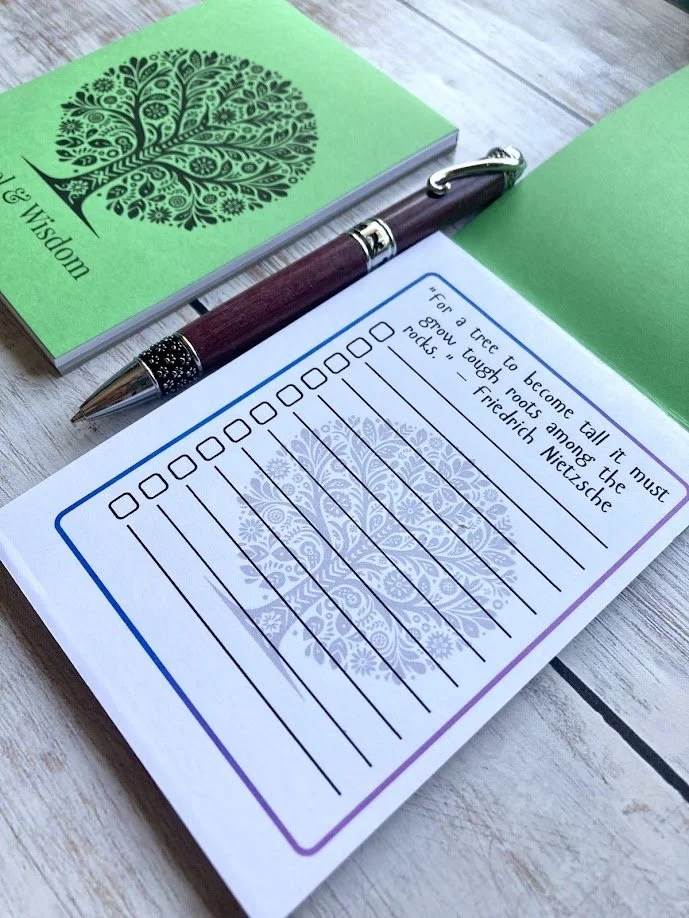 & Wisdom
"For a tree to become tall it must
grow tough roots among the
rocks." – Friedrich Nietzsche